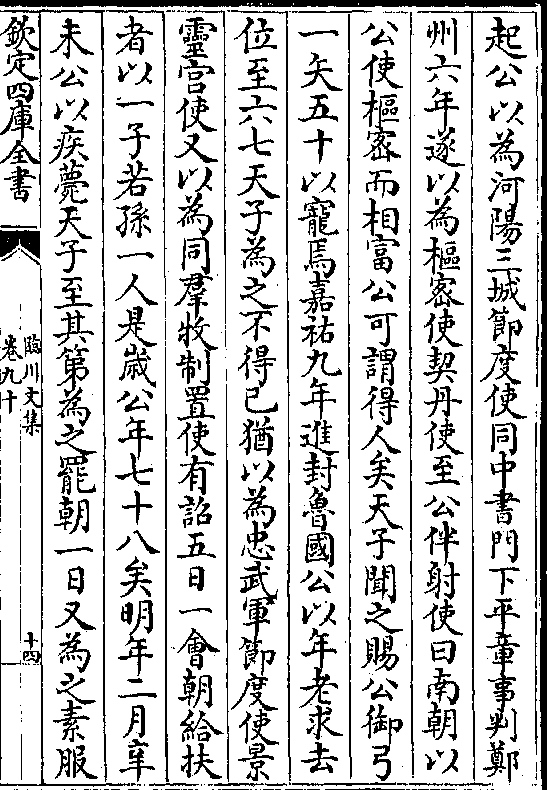 起公以為河陽三城節度使同中書門下平章事判鄭
州六年遂以為樞密使契丹使至公伴射使曰南朝以
公使樞密而相富公可謂得人矣天子聞之賜公御弓
一矢五十以寵焉嘉祐九年進封魯國公以年老求去
位至六七天子為之不得已猶以為忠武軍節度使景
靈宫使又以為同羣牧制置使有詔五日一會朝給扶
者以一子若孫一人是歳公年七十八矣明年二月辛
未公以疾薨天子至其第為之罷朝一日又為之素服
欽定四庫全書
臨川文集
卷九十
十四